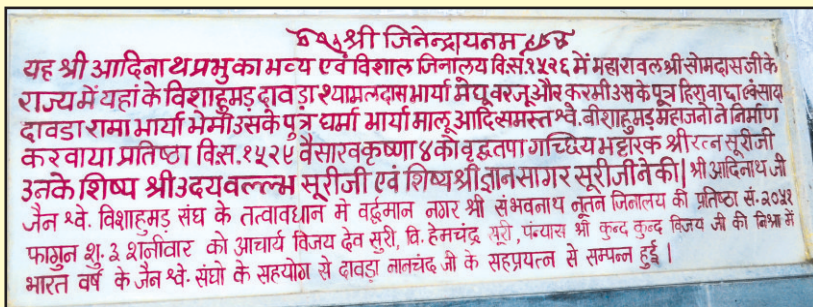 श्री जिनेन्द्रायनम
यह श्री आदिनाथ प्रभु का भव्य एवं विशाल जिनालय वि.स.१५२६ में महारावल श्री सोमदास जी के
राज्य में यहां के विशाहुमड़ दावड़ा श्यामलदास भार्या मेघू वरजू और करमी उसके पुत्र हिरा वाघा
दावडा रामा भार्या भेमी उसके पुत्र धर्मा भार्या मालू आदि समस्त श्वे. वीशाहुमड़ महाजनो ने निर्माण
करवाया प्रतिष्ठा वि.स.१५२९ वैसारव कृष्णा ४ को वृद्धतपा गच्छिय भट्टारक श्री रत्न सूरीजी
उनके शिष्य श्री उदयवल्ल्भ सूरीजी एवं शिष्य श्री ज्ञानसागर सूरीजी ने की| श्री आदिनाथ जी
जैन श्वे. विशाहुमड़ संघ के तत्वावधान में वर्द्धमान नगर श्री संभवनाथ नूतन जिनालय की प्रतिष्ठा सं.
फागुन शु. ३ शनीवार को आचार्य विजय देव सुरी, वि. हेमचंद्र सूरी, पंन्यास श्री कुन्द कुन्द विजय जी की निश्रा में
भारत वर्ष के जैन श्वे. संघो के सहयोग से दावड़ा नानचंद जी के सहप्रयत्न से सम्पन्न हुई |